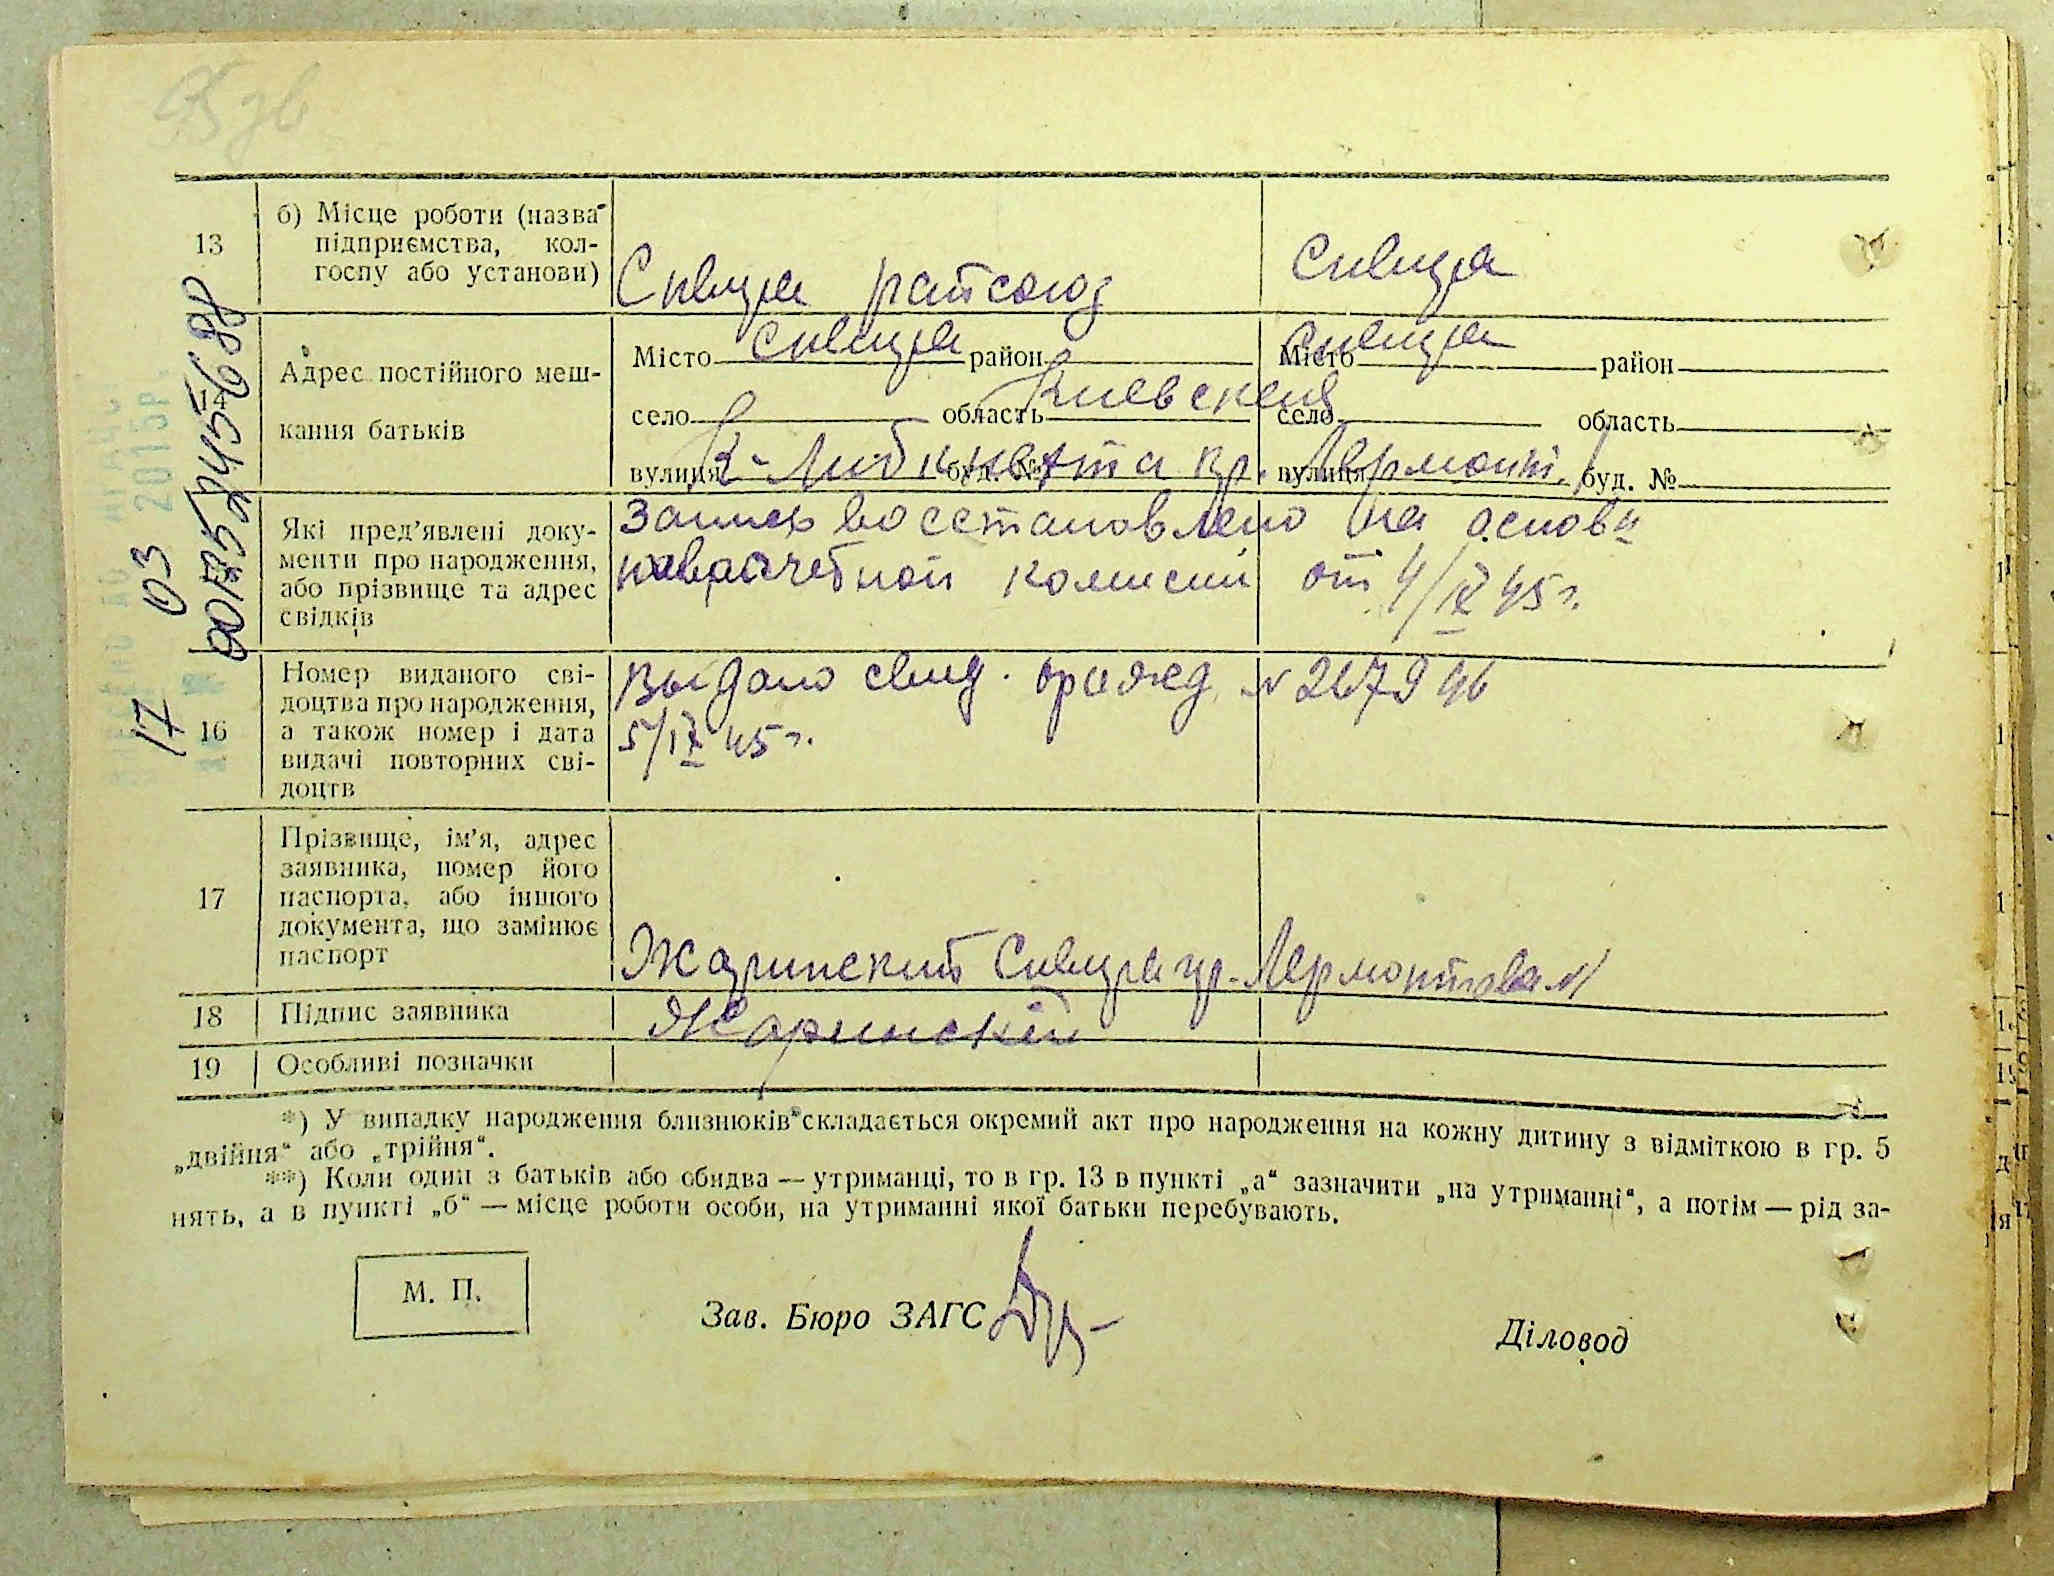 13
б) Місце роботи (назва
підприємства, кол-
госпу або установи)
Сквира райсоюз
Сквира
Адрес постійного меш-
кання батьків
Місто Сквира район
село область Киевская
вулиця К-Либкнехта буд. №
Місто Сквира район
село область
вулиця Лермонт. буд. №
Які пред’явлені доку-
менти про народження,
або прізвище та адрес
свідків
Запись восстановлено на основ
комисии от 4/IX 45 г.
16
Номер виданого сві-
доцтва про народження,
а також номер і дата
видачі повторних сві-
доцтв
Выдано свид. орожд. № 267946
5/IX 45 г.
17
Прізвище, ім’я, адрес
заявника, номер його
паспорта, або іншого
документа, що замінює
паспорт
Жаринский Сквира ур. Лермонтова
18
Підпис заявника
Жаринскій
19
Особливі позначки
*) У випадку народження близнюків складається окремий акт про народження на кожну дитину з відміткою в гр. 5
„двійня“ або „трійня“.
**) Коли один з батьків або обидва — утриманці, то в гр. 13 в пункті „а“ зазначити „на утриманці“, а потім — рід за-
нять, а в пункті „б“ — місце роботи особи, на утриманні якої батьки перебувають.
М. П.
Зав. Бюро ЗАГС
Діловод
17 03
2015р.